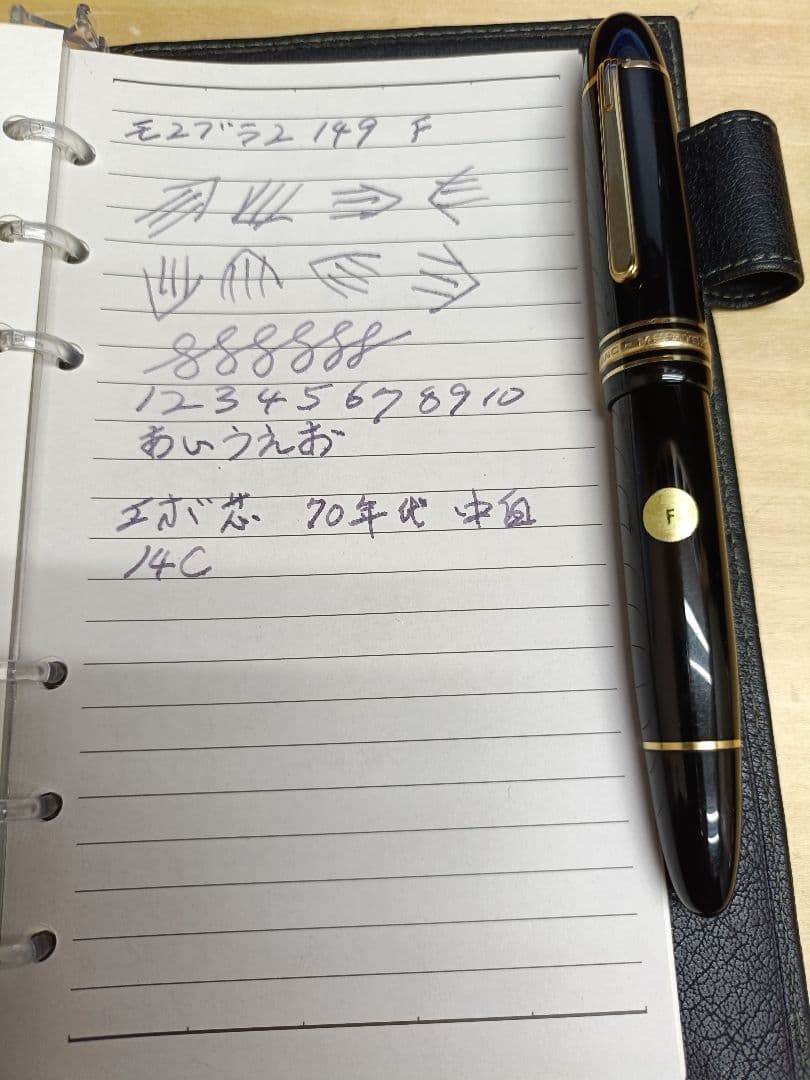 モンブラン 149 F
888888
1 2 3 4 5 6 7 8 9 10
あいうえお
エボ芯 70年代 中白
14C
F